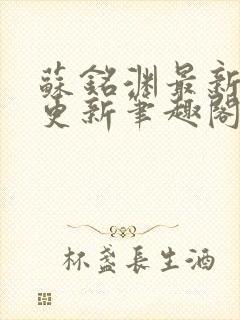 蘇銘淵最新
更新筆趣閣
杯盞長生酒